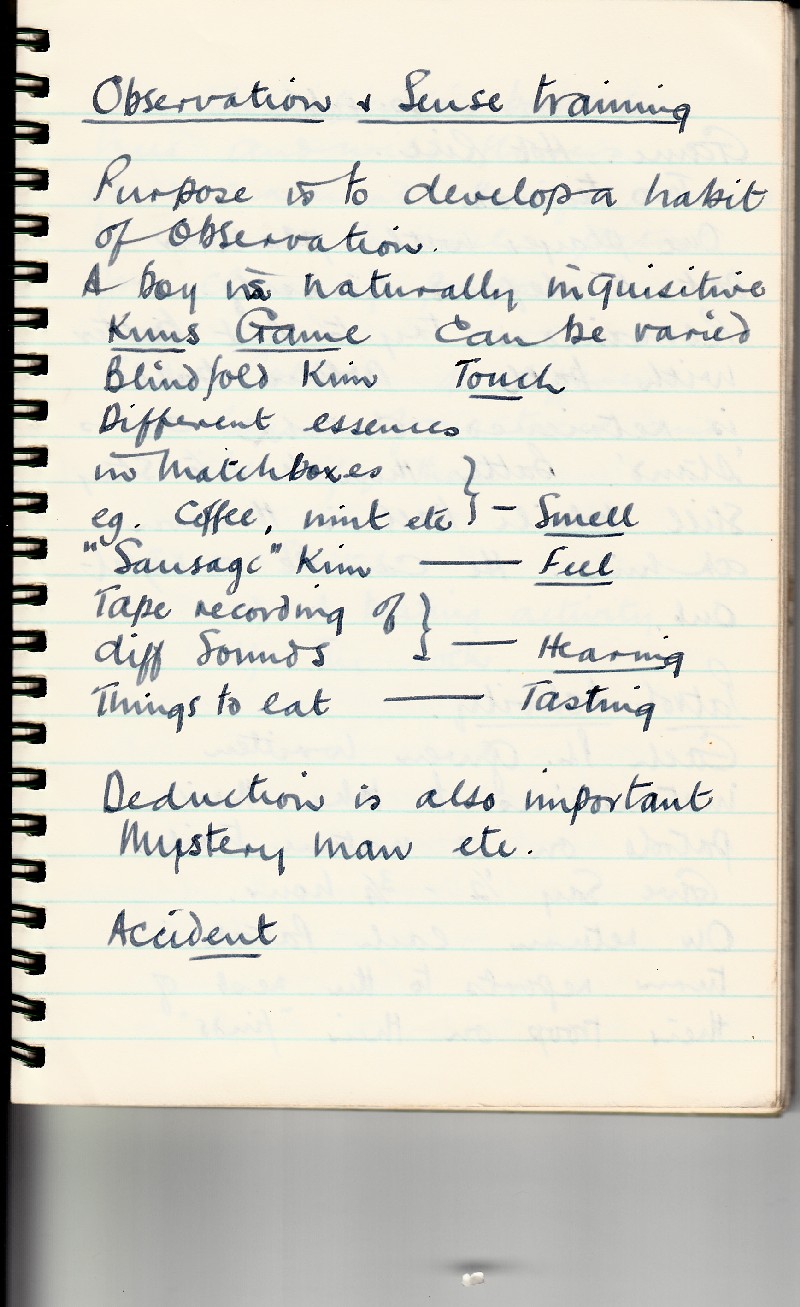 Observation & Sense training
Purpose is to develop a habit
of Observation.
A boy is naturally inquisitive
Kims Game Can be varied
Blindfold Kim Touch
Different essences
in Matchboxes
eg. Coffee, mint etc } - Smell
"Sausage" Kim — Feel
Tape recording of
diff Sounds } — Hearing
Things to eat — Tasting
Deduction is also important
Mystery man etc.
Accident